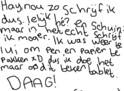 Hay nou zo schrijf ik
dus. lelijk hè? en schuin.
maar in het echt schrijf
ik mooier. Ik was weer te
lui om pen en papier te
pakken xD dus ik doe het
maar op de teken tablet
DAAG!